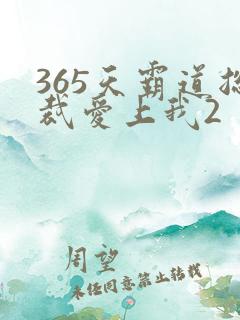 365天霸道总
裁爱上我2
周望
未经同意禁止转载